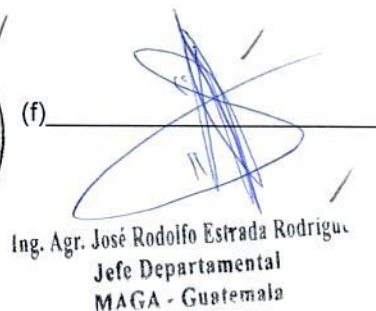 (f)
Ing. Agr. José Rodolfo Estrada
Jefe Departamental
MAGA - Guatemala